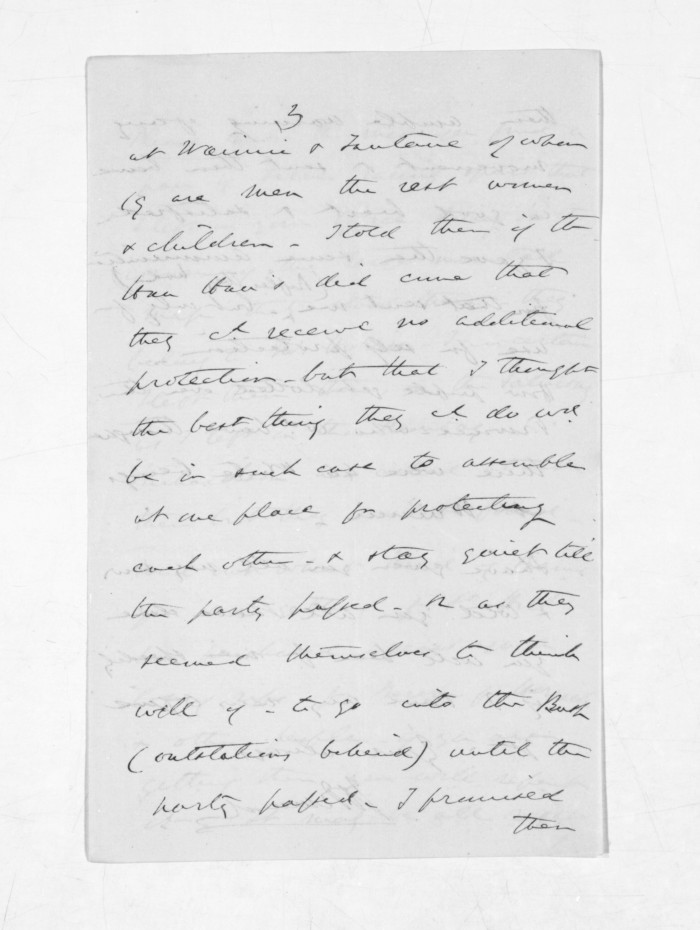 3
at Waimii & Tautane of whom
19 are men the rest women
& children - I told them if the
Hau Hau's did come that
they cd. receive no additional
protection - but that I thought
the best thing they cd. do wd.
be in such case to assemble
at one place for protecting
each other - & stay quiet till
the party passed - or as they
seemed themselves to think
well of - to go into the Bush
(outstations behind) until the
party passed - I promised
them